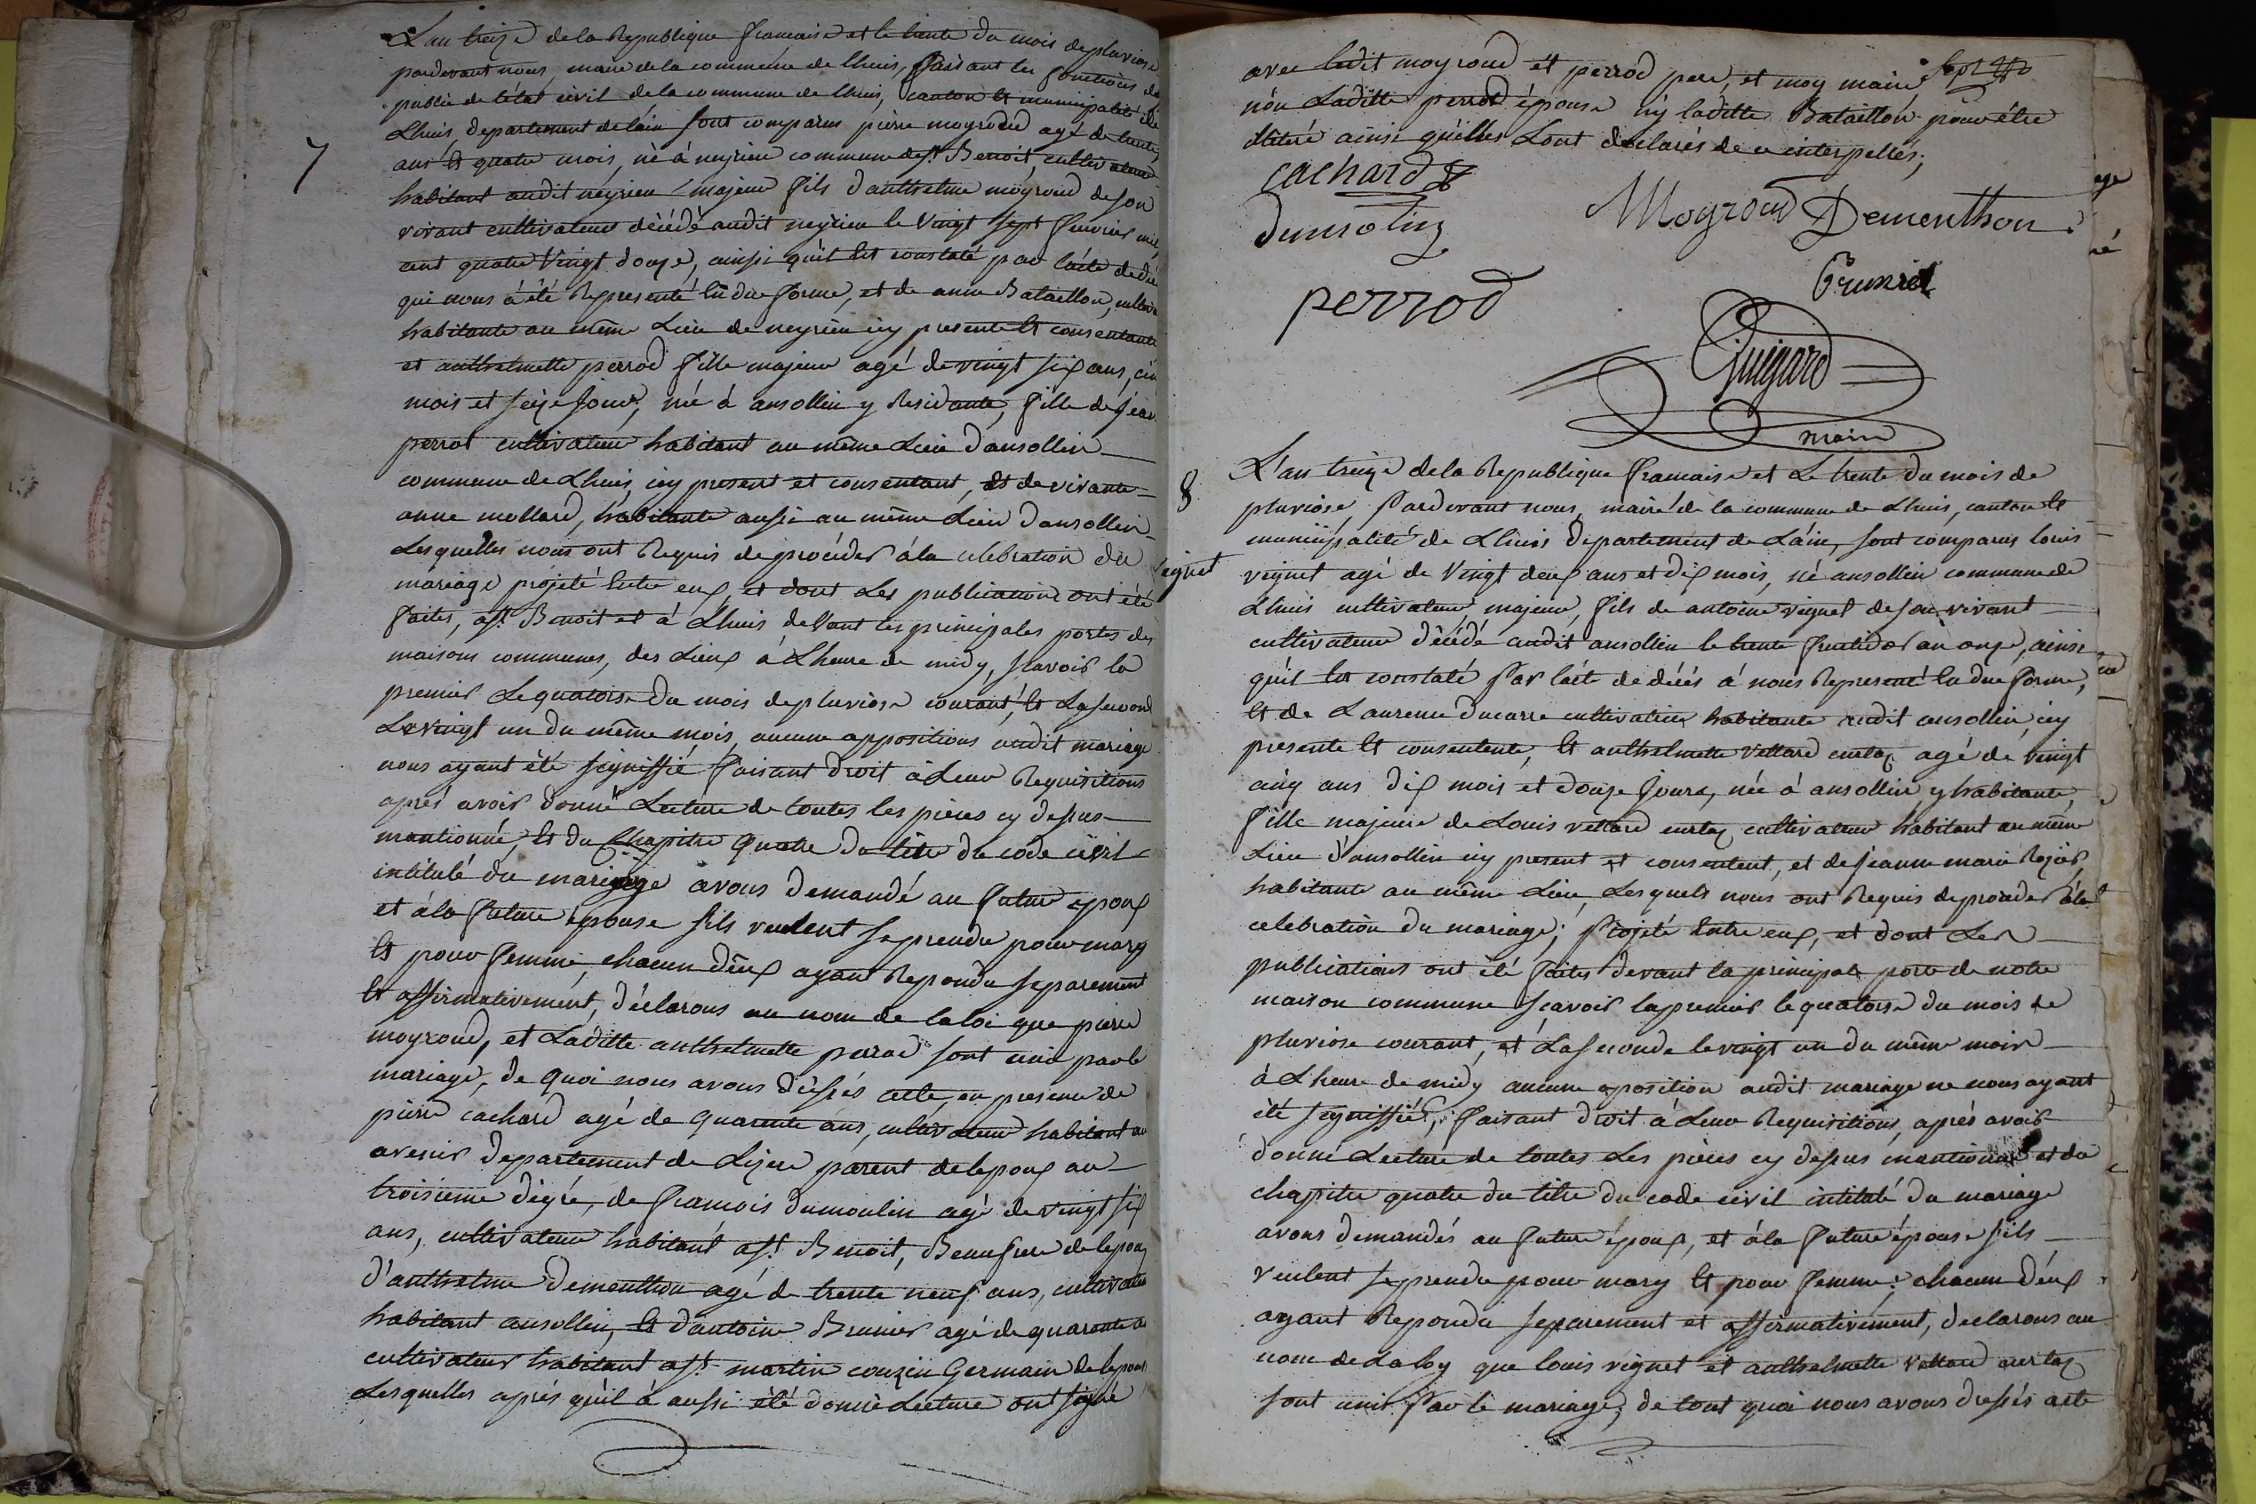 7
L'an treize de la Republique francaise et le trente du mois de pluviose
pardevant nous, maire de la commune de Lhuis, faisant les fonctions
public de l'état civil de la commune de Lhuis, canton et municipalité de
Lhuis, departement de lain sont comparus pierre moyroud agé de trente
ans et quatre mois, né à neyrieu commune de St Benoit cultivateur
habitant audit neyrieu majeur fils d'anthelme moyroud de son
vivant cultivateur décédé audit neyrieu le vingt sept fevrier mil
cent quatre vingt douze, ainsi qu'il est constaté par l'acte de
qui nous à été Representé en due forme, et de anne Bataillon,
habitante au même Lieu de neyrieu icy presente et consentante
et anthelmette perrod fille majeur agé de vingt six ans,
mois et seize jours, né à ansollin y Residante, fille de jean
perrot cultivateur habitant au même Lieu d'ansollin
commune de Lhuis icy present et consentant, et de vivante
anne mollard, habitante aussi au même Lieu d'ansollin
Lesquelles nous ont Requis de procéder à la celebration du
mariage projeté Entre eux, et dont Les publications ont été
faites, à St Benoit et à Lhuis devant les principales portes des
maisons communes, des Lieux à L'heure de midy, scavoir la
premier Le quatorse du mois de pluviose courant, et La second
Le vingt un du même mois, aucune appositions audit mariage
nous ayant été signiffié faisant droit à Leur Requisitions
aprés avoir donné Lecture de toutes les pièces cy dessus
mantionné, et du Chapitre quatre du titre du code civil
intitulé du mariage avons demandé au futur epoux
et à la future épouse s'ils veulent se prendre pour mary
Et pour femme, chacun d'eux ayant Repondu separement
Et affirmativement, déclarons au nom de la loi que pierre
moyroud, et Laditte anthelmette perrod sont unis par le
mariage, de quoi nous avons dressés acte, en presence de
pierre cachard agé de quarente ans, cultivateur habitant au
avenir departement de Lizere parent de lepoux au
troisieme dégré, de francois dumoulin agé de vingt six
ans, cultivateur habitant à St Benoit, Beaufrere de lepoux
d'anthelme dementhon agé de trente neuf ans, cultivateur
habitant ansollin, Et d'antoine Brunier agé de quarante
cultivateur habitant à St martin couzin Germain de lepoux
Lesquelles aprés qu'il à aussi été donné Lecture ont signé
avec ledit moyroud et perrod pere, et moy maire
non Laditte perrod épouse ny laditte Bataillon pour être
illitéré ainsi qu'elles L'ont declarés de ce interpellés;
cachard
dumolin
Moyroud Dementhon
perrod
Brunié
Guigard
maire
8
vignet
L'an treize de la Republique francaise et Le trente du mois de
pluviose, Pardevant nous, maire de la commune de Lhuis, canton et
municipalité de Lhuis departement de L'ain, sont comparus louis
vignet agé de vingt deux ans et dix mois, né ansollin commune de
Lhuis cultivateur majeur, fils de antoine vignet de son vivant
cultivateur décédé audit ansollin le trente fructidor an onze, ainsi
qu'il est constaté Par l'acte de décés à nous Representé en due forme,
Et de Laurence ducarre cultivatrice habitante audit ansollin icy
presente Et consentente, Et anthelmette vettard curtaz agé de vingt
cinq ans dix mois et douze jours, née à ansollin y habitante,
fille majeure de Louis vettard curtaz cultivateur habitant au même
Lieu d'ansollin icy present et consentent, et de jeanne marie
habitante au même Lieu Lesquels nous ont Requis de proceder à la
celebration du mariage; Projeté Entre eux, et dont Les
publications ont été faites devant la principale porte de notre
maison commune scavoir la premier le quatorse du mois de
pluviose courant, et La seconde le vingt un du même mois
à L'heure de midy aucune oposition audit mariage ne nous ayant
été signiffiés, faisant droit à Leur Requisitions, aprés avoir
donné Lecture de toutes Les pièces cy dessus mantionné et du
chapitre quatre du titre du code civil intitulé du mariage
avons demandés au futur époux, et à la future épouse s'ils
veulent se prendre pour mary Et pour femme; chacun d'eux
ayant Repondu separement et affirmativement, declarons au
nom de La loy que louis vignet et anthelmette vettard curtaz
sont unis Par le mariage, de tout quoi nous avons dressés acte